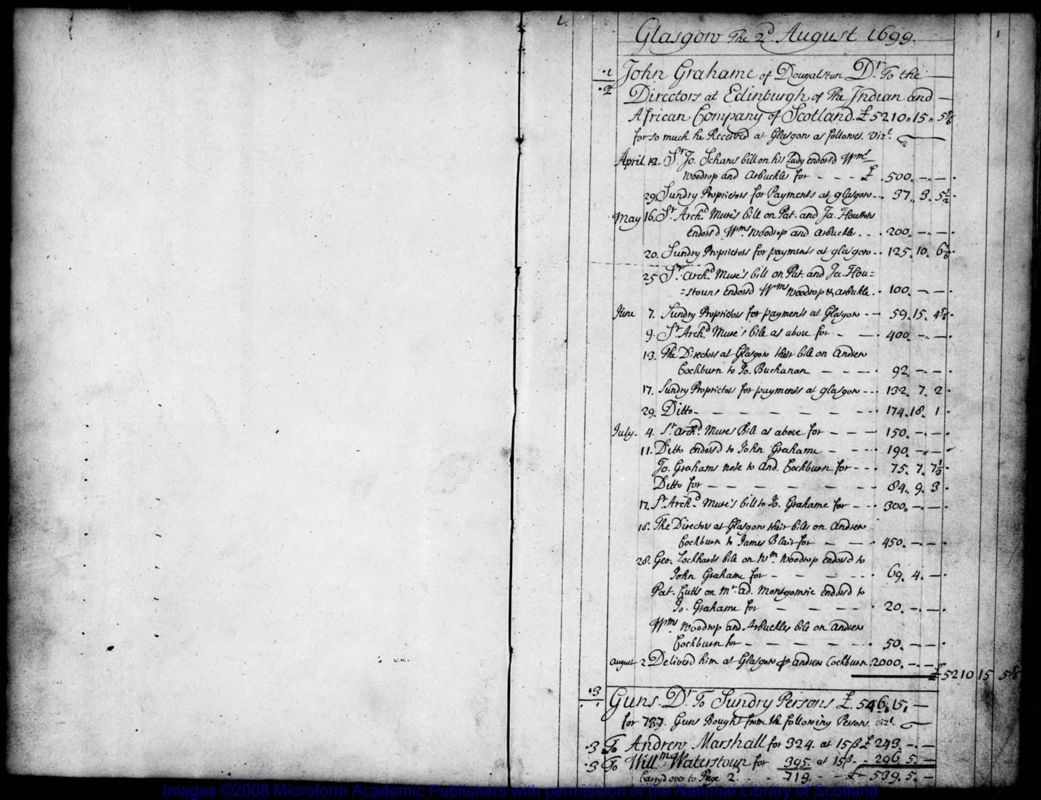 1.
1
Glasgow The 2d August 1699.
.1 John Grahame of Dougalston Dr. To the
.2 Directors at Edinburgh of The Indian and
African Company of Scotland. £5210.15.5
for so much he Received at Glasgow as follows. vizt.
April 12. Sr. Jo. bill on his Lady endorsd Wms
Woodrop and Arbuckle for £ 500. — —
29. Sundry Proprietors for Payments at glasgow 37. 3. 5½
May 16. Sr. Archd. Mure's bill on Pat. and Ja. Houstons
endorsd Wms Woodrop and Arbuckle 200. — —
20. Sundry Proprietors for payments at glasgow 125. 10. 6
25 Sr. Archd. Mure's bill on Pat. and Ja. Hou=
=stouns endorsd Wms Woodrop & Arbuckle. 100. — —
June 7. Sundry Proprietors for payments at Glasgow 59. 15. 4
9. Sr. Archd. Mure's bill as above for 400 — —
13. The Directors at Glasgow their bill on Andrew
Cockburn to Jo. Buchanan 92 — —
17. Sundry Proprietors for payments at glasgow 132. 7. 2
29. Ditto 174. 18. 1
July. 4. Sr Archd. Mures Bill as above for 150. — —
11. Ditto endorsd to John Grahame 190. — —
Jo. Grahams note to And. Cockburn for 75. 7. 7
Ditto for 84. 9. 3
17. Sr. Archd. Mure's bill to Jo. Grahame for 300. — —
18. The Directors at Glasgow their bills on Andrew
Cockburn to James Blair for 450. — —
28. Geo. Lockharts bile on Wm Woodrop endorsd to
John Grahame for 69. 4. —
Pat. on Mr. Ad. Montgomrie endorsd to
Jo. Grahame for 20. — —
Wms Woodrop and Arbuckles bile on Andrew
Cockburn for 50. — —
August 2 Delivered him at Glasgow Andrew Cockburn. 2000. — —
£5210 15 5
.3 Guns Dr. To Sundry Persons £ 546.15. —
for Guns Bought from the following Persons. vizt.
.3 To Andrew Marshall for 324. at 15ß £ 243. — —
.3 To Willm Waterstoun for 395. at 15ß. 296. 5. —
Carry'd over to Page 2. 719. £ 539. 5. —
Images ©2008 Microform Academic Publishers with permission of the National Library of Scotland